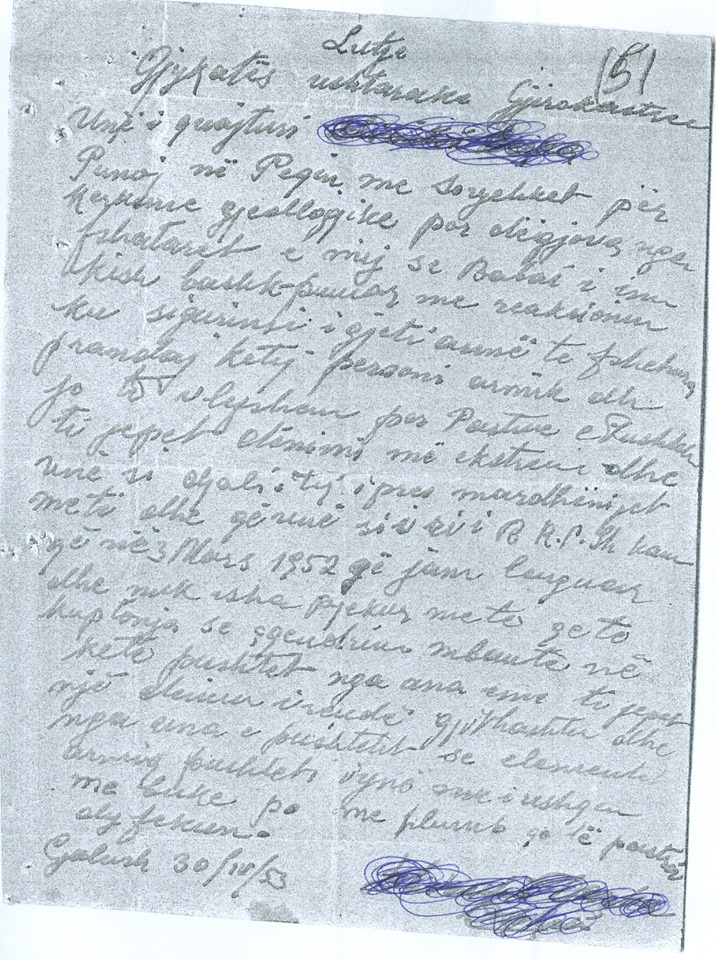 Lutje
151
Gjykatës ushtarake Gjirokastrë
Unë i quajturi
Punoj në Peqin me sonjehket për
kerkime gjeollogjike por digjova nga
fshataret e mij se Babai i im
kish bashk-punuar me reaksionin
ku sigurimi i gjeti armë te fshehura
prandaj ketij personi armik dhe
jo të vlyshem per Partine e Pushtetin
ti jepet dënimi më ekstrem dhe
unë si djali i tij i pres maredhënijet
me të dhe që në si i R.P.Sh kam
që në 3 Mars 1952 që jam larguar
dhe nuk isha pjekur me te qe të
kuptonja se qendrim mbante në
kete pushtet nga ana ime ti jepet
një denim i rendë gjithashtu dhe
nga ana e pushtetit se elementi
armiq pushteti jonë nuk i ushqen
me buke po me plumb qe të pastroj
dyfekun.
30/IV/53